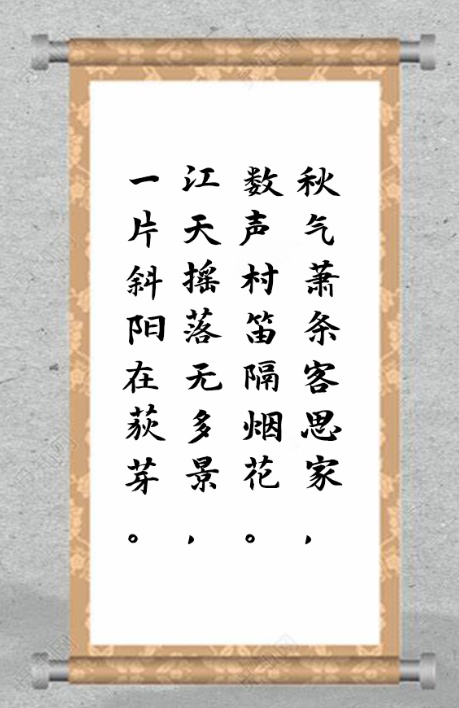 秋气萧条客思家，
数声村笛隔烟花。
江天摇落无多景，
一片斜阳在荻芽。